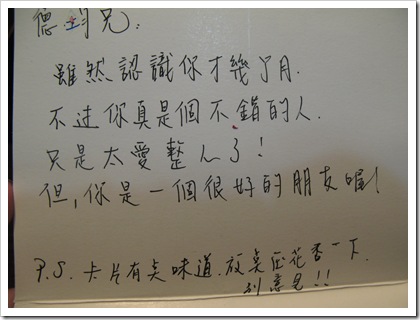 德兄:
雖然認識你才幾个月.
不过你真是個不錯的人.
只是太愛整人了!
但,你是一個很好的朋友喔!
P.S. 卡片有奌味道.放奌花香一下.
別意見!!